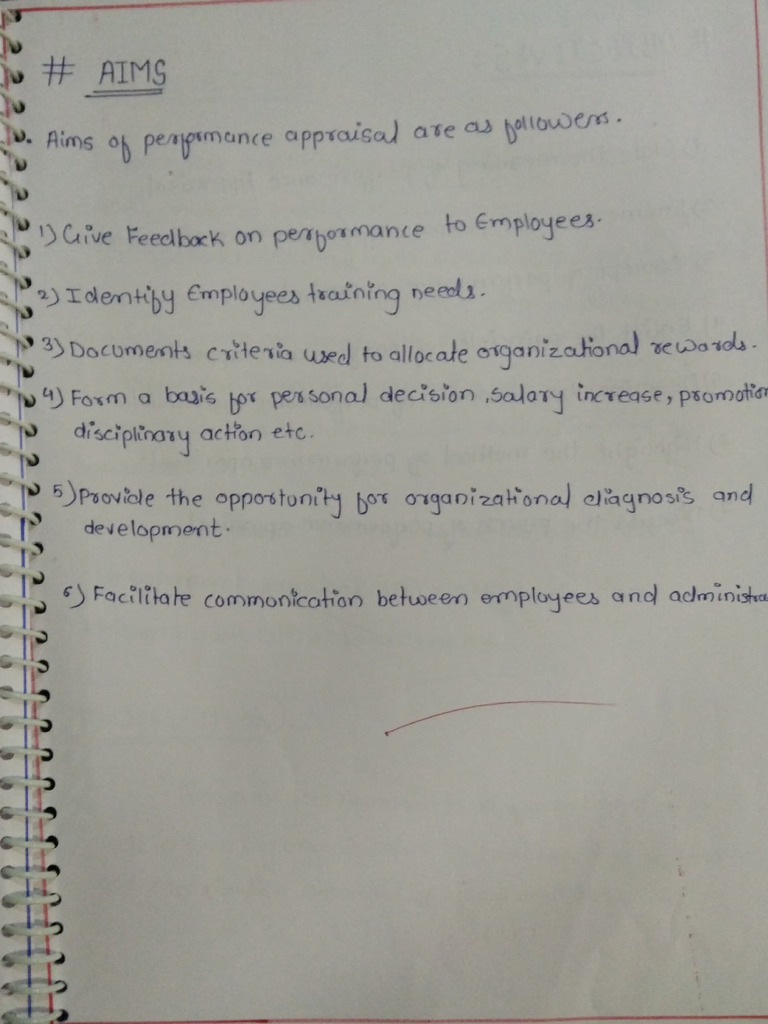 # AIMS
Aims of performance appraisal are as followers.
1) Give Feedback on performance to Employees.
2) Identify Employees training needs.
3) Documents criteria used to allocate organizational rewards.
4) Form a basis for personal decision, salary increase, promotion
disciplinary action etc.
5) Provide the opportunity for organizational diagnosis and
development.
6) Facilitate commonication between employees and administra